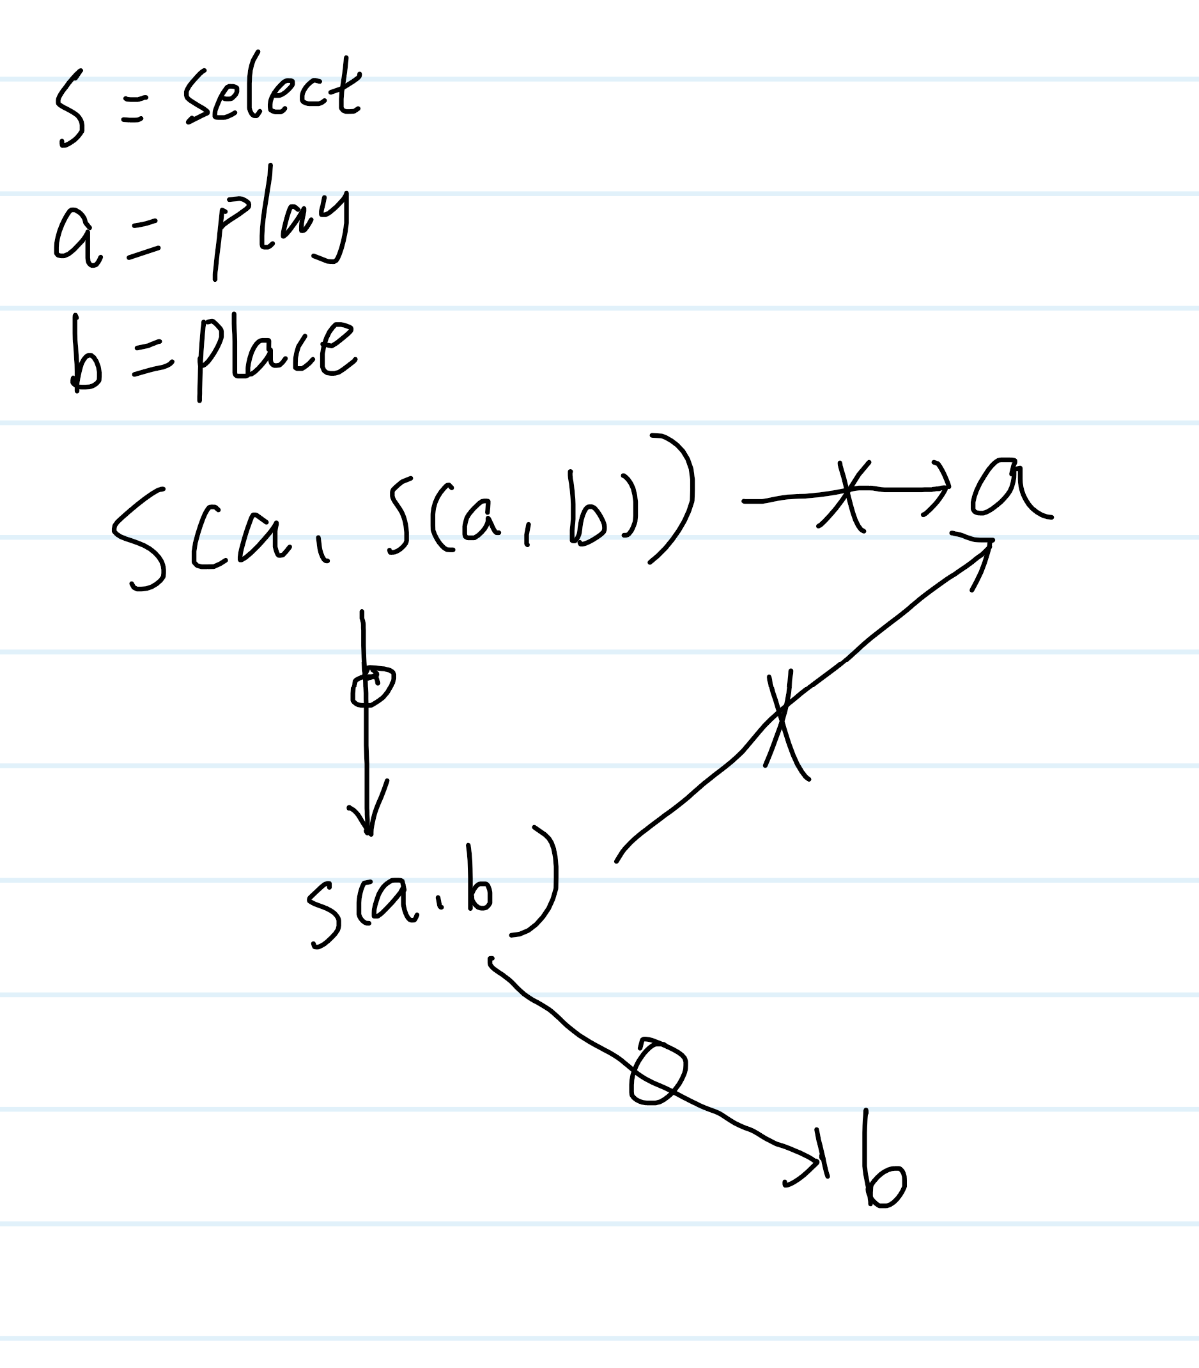 S = select
a = play
b = place
S(a, S(a, b)) a
s(a.b)
b